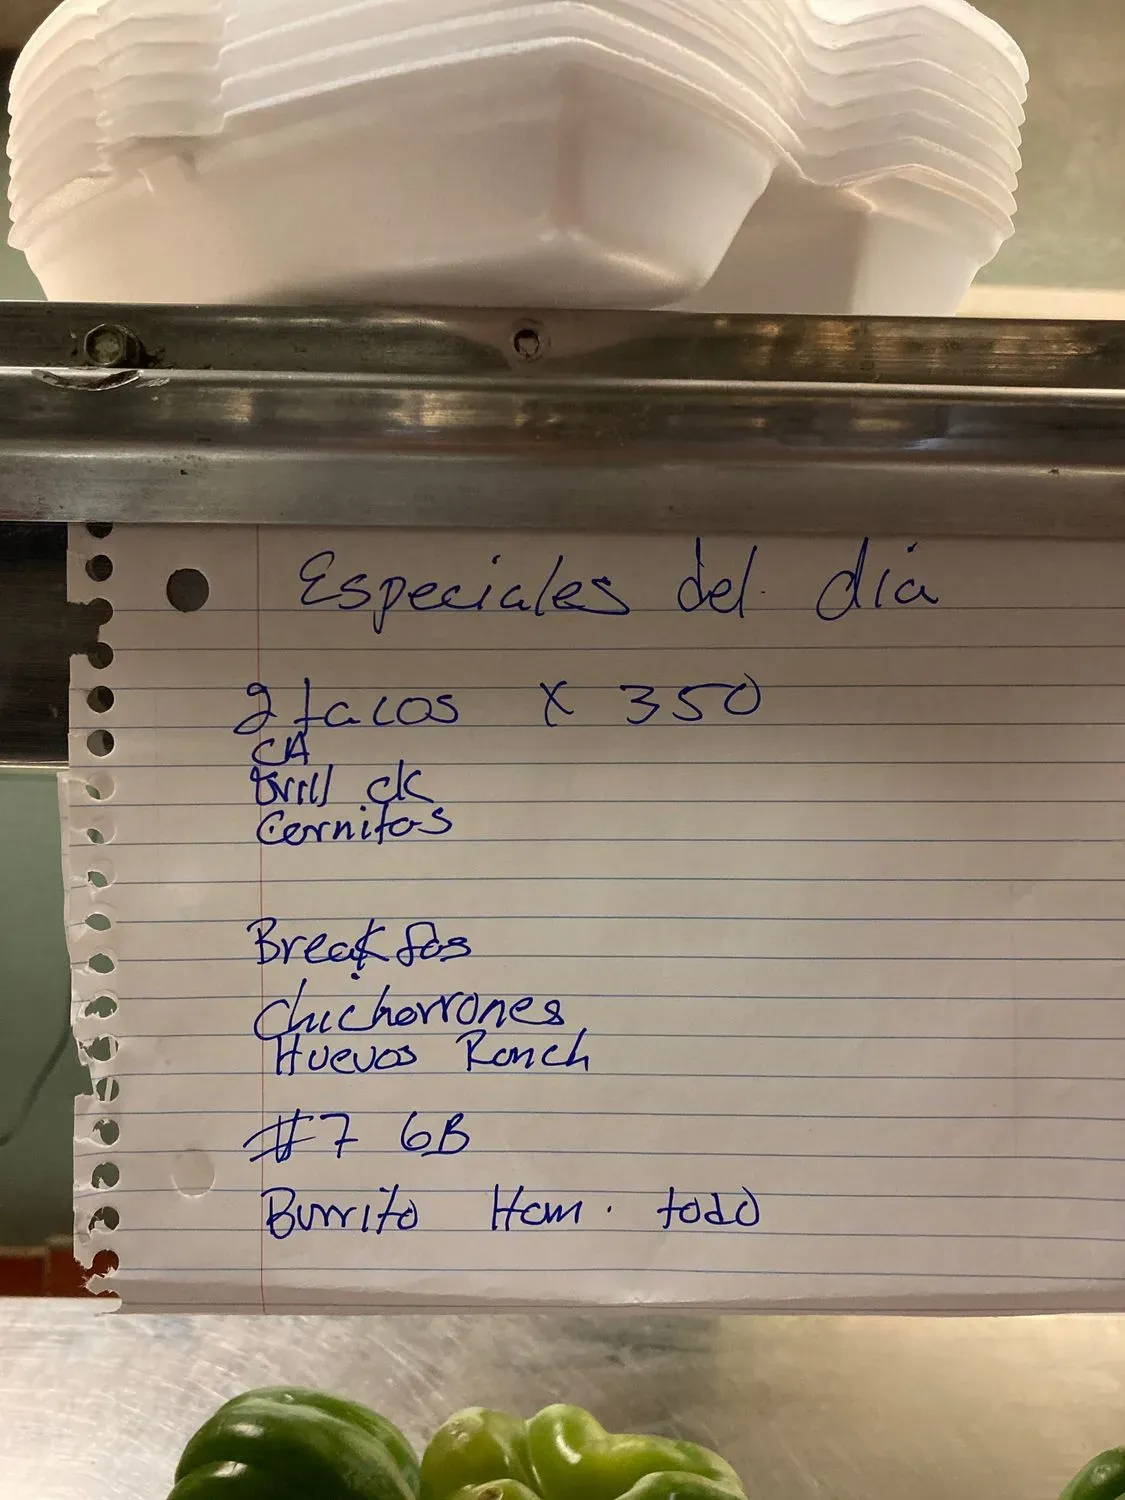 Especiales del dia
2 tacos x 350
CA
Grill ck
Cornitos
Breakfas
Chicharrones
Huevos Ranch
#7 6B
Burrito Ham. todo